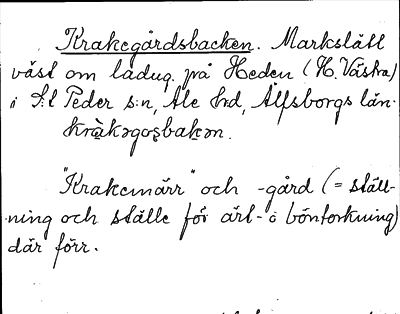 Krakegårdsbacken. Markslätt
väst om ladug. på Heden (H. Västra)
i S:t Peder s:n, Ale hrd, Älfsborgs län.
kràkəgoʂbakən.
"Krakemärr" och -gård (= ställ-
ning och ställe för ärt- o böntorkning)
där förr.